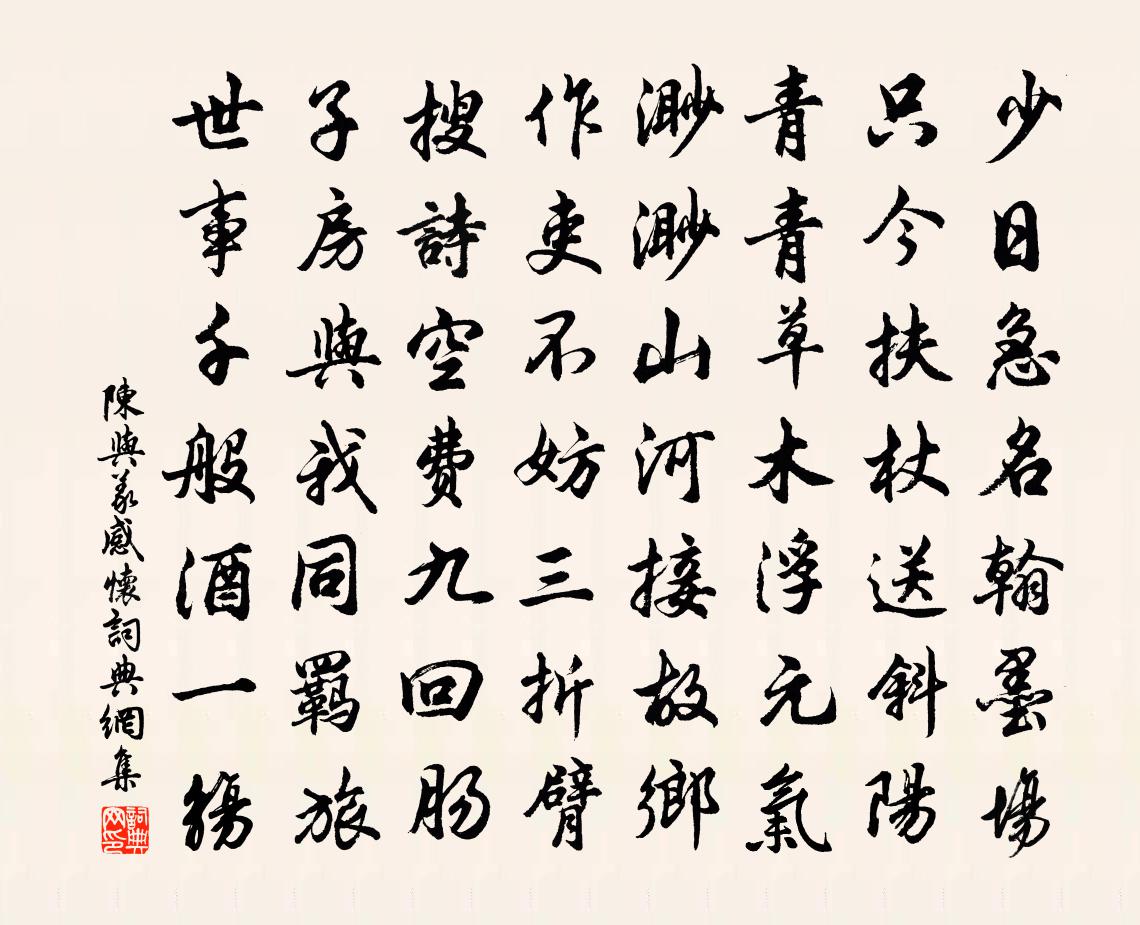 少日急名翰墨場
只今扶杖送斜陽
青青草木浮元氣
渺渺山河接故鄉
作吏不妨三折臂
搜詩空費九回腸
子房與我同羈旅
世事千般酒一觴
陳與義感懷詞典網集
詞典網印